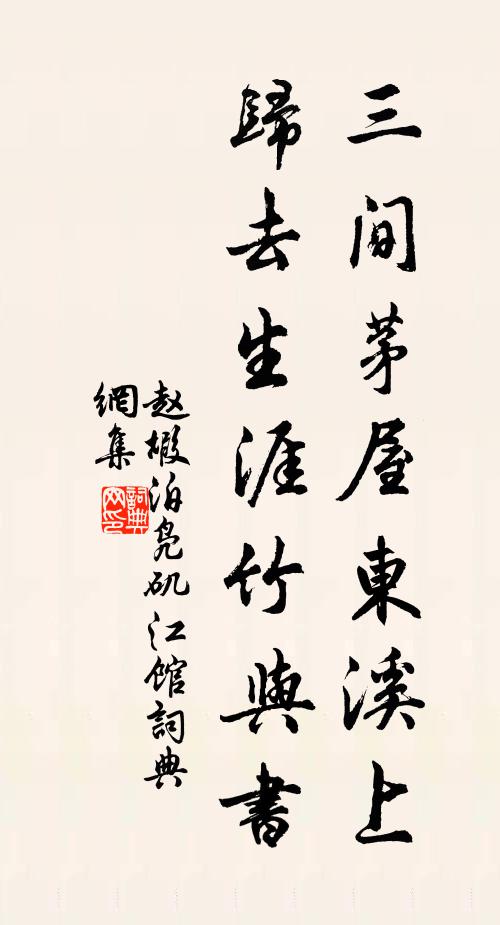 三間茅屋東溪上
歸去生涯竹與書
赵嘏泊凫矶江馆詞典
網集
詞典网印